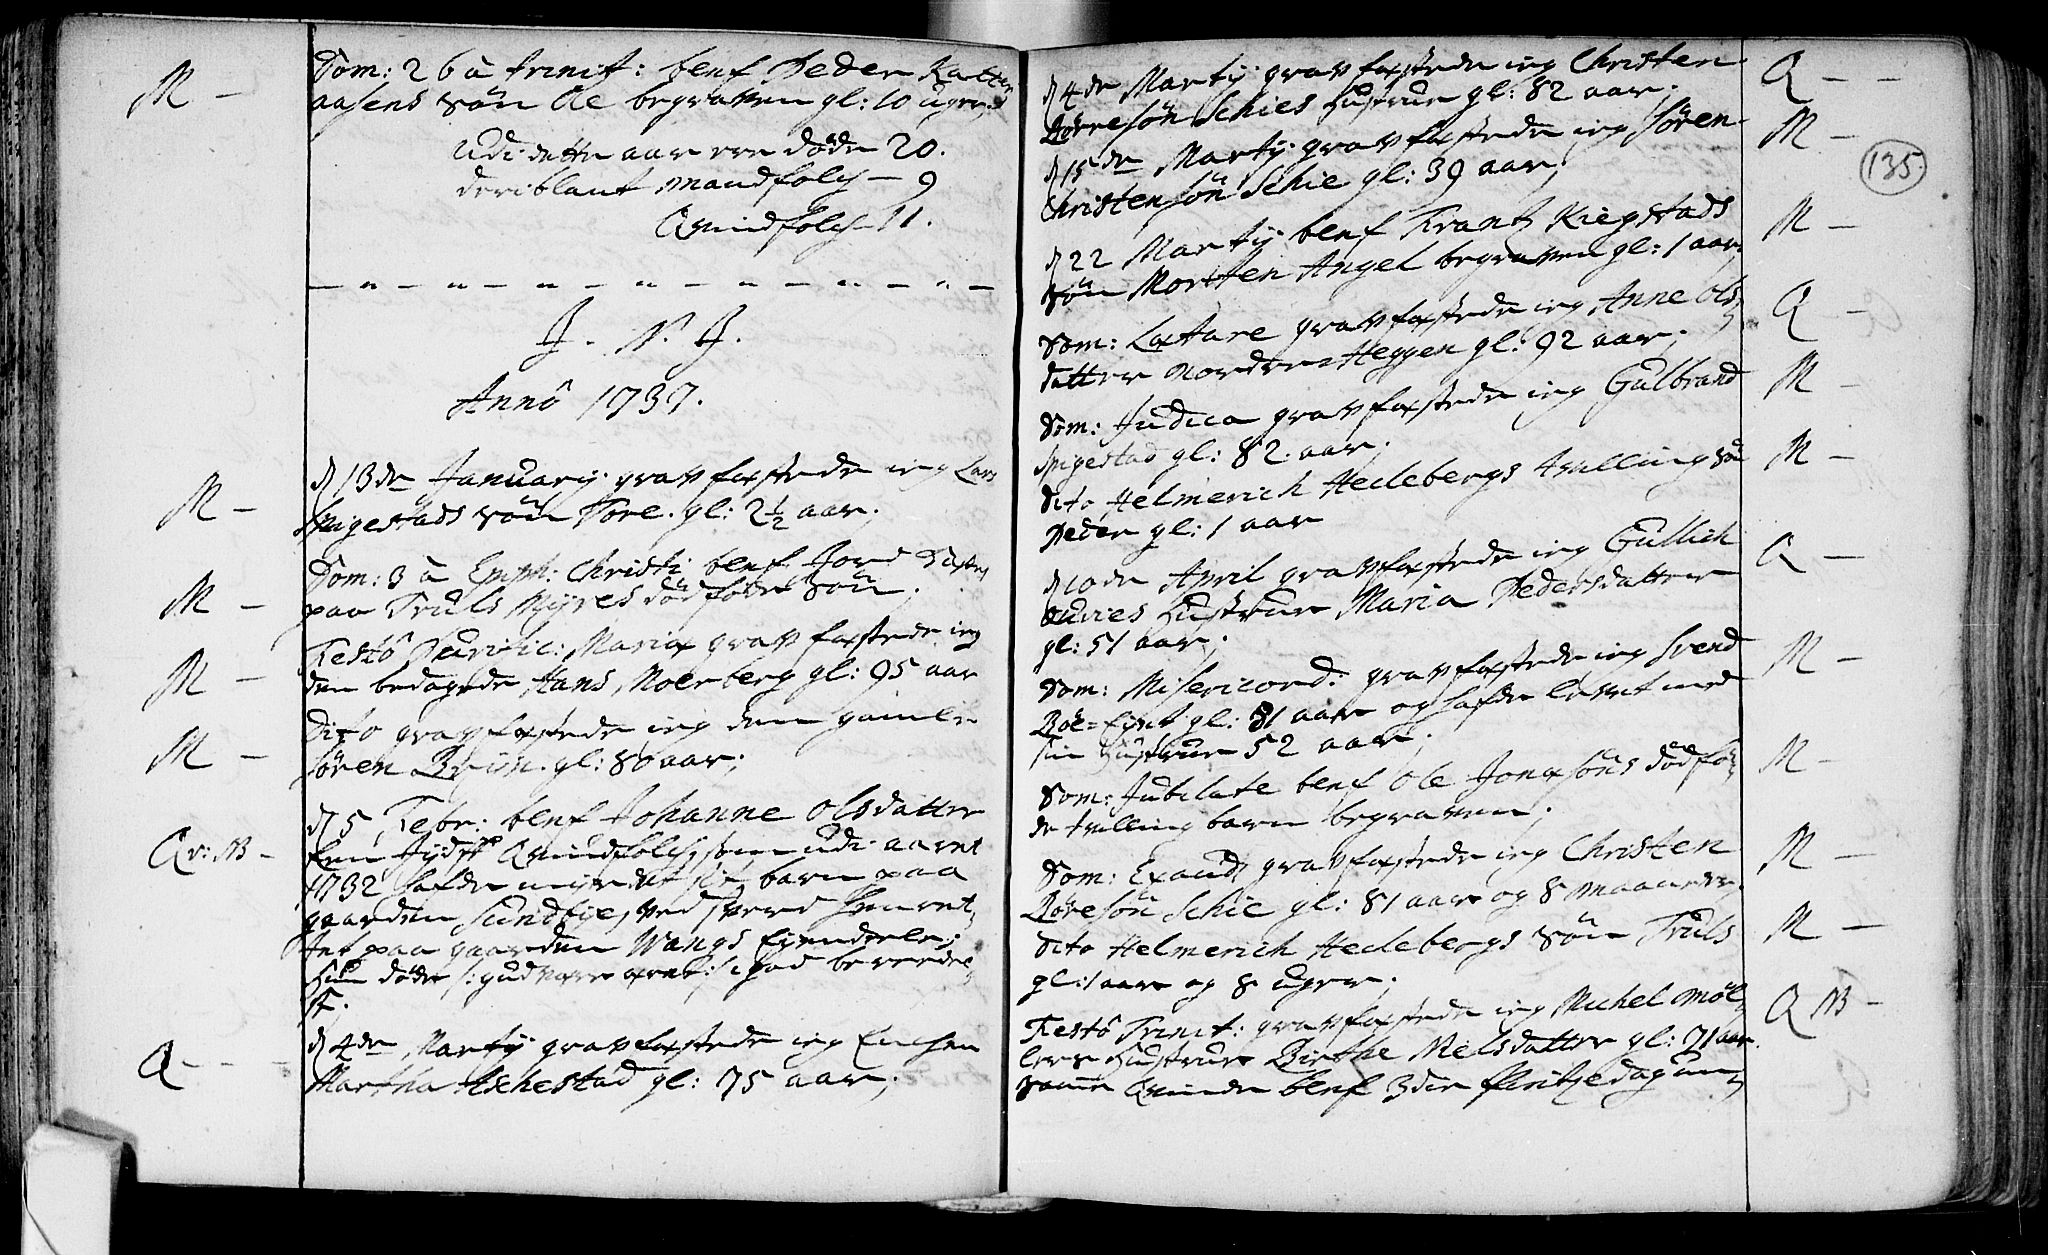 M - Dom: 26 à trinit: blef Peder Katter
aasens Søn Ole begraven gl: 10 uger;
Udi dette aar ere døde 20.
deriblant Mandfolch - 9
Qvindfolch - 11.
J. N. J.
Annô 1737.
M - d 13de January grav fæstede ieg Lars
Spigestads Søn Tore. gl: 2 1/2 aar;
M - Dom: 3 à Epiph: Christi blef Jord kastet
paa Truls Myres dødføde Søn;
M - Festô Purific: Mariæ grav fæstede ieg
den bedagede Hans Moerberg gl: 95 aar
M - Dito grav fæstede ieg den gamle
Søren Bruun. gl: 80 aar;
Qv: M - d 5 Febr: blef Johanne Olsdatter
Een Qvindfolch, som udi aaret
1732 hafde myrdet sit barn paa
gaarden Sundbye, ved sverd henret-
tet paa gaarden Wangs Eyendele;
Hun døde /: gud være æret :/ god bereedel-
se.
Q - - - d 4de Marty grav fæstede ieg Enchen
Martha Aschestad gl: 75 aar;
135.
d 4de Marty grav fæstede ieg Christen Q - -
Børresøn Schies Hustrue gl: 82 aar;
d 15de Marty grav fæstede ieg Søren M -
Christensøn Schie gl: 39 aar;
d 22 Marty blef Frantz Kiegstads M -
Søn Morten Angel begraven gl: 1 aar;
Dom: Lætare grav fæstede ieg Anne Ols Q -
datter Nordre Heggen gl: 92 aar;
Dom: Judica grav fæstede ieg Gulbrand M -
Spigestad gl: 82. aar;
Dito Helmerich Hedebergs tvilling Søn M -
Peder gl: 1 aar
d 10de April grav fæstede ieg Gullich Q -
Auries Hustrue Maria Pedersdatter
gl: 51 aar;
Dom: Misericord: grav fæstede ieg Svend M -
Böe=Eyet gl: 81 aar og hafde levet med
sin Hustrue 52 aar;
Dom: Jubilate blef Ole Jonæsöns dødfö- M -
de tvilling barn begraven;
Dom: Exaudi grav fæstede ieg Christen M -
Børesøn Schie gl: 81 aar og 8 maaneder.
Dito Helmerich Hedebergs Søn Truls M -
gl: 1 aar og 8 uger;
Festô Trinit: grav fæstede ieg Michel Möl- Q M -
lers Hustrue Birthe Nielsdatter gl: 71 aar.
Samme Qvinde blef 3die Pintzedag